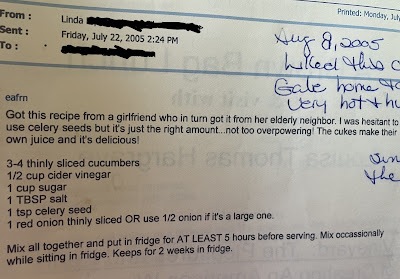 Printed: Monday, July
From :
Linda
Sent :
Friday, July 22, 2005 2:24 PM
To :
Aug 8, 2005
Liked this
Gale home
very hot &
eafrn
Got this recipe from a girlfriend who in turn got it from her elderly neighbor. I was hesitant to
use celery seeds but it's just the right amount...not too overpowering! The cukes make their
own juice and it's delicious!
the
3-4 thinly sliced cucumbers
1/2 cup cider vinegar
1 cup sugar
1 TBSP salt
1 tsp celery seed
1 red onion thinly sliced OR use 1/2 onion if it's a large one.
Mix all together and put in fridge for AT LEAST 5 hours before serving. Mix occassionally
while sitting in fridge. Keeps for 2 weeks in fridge.